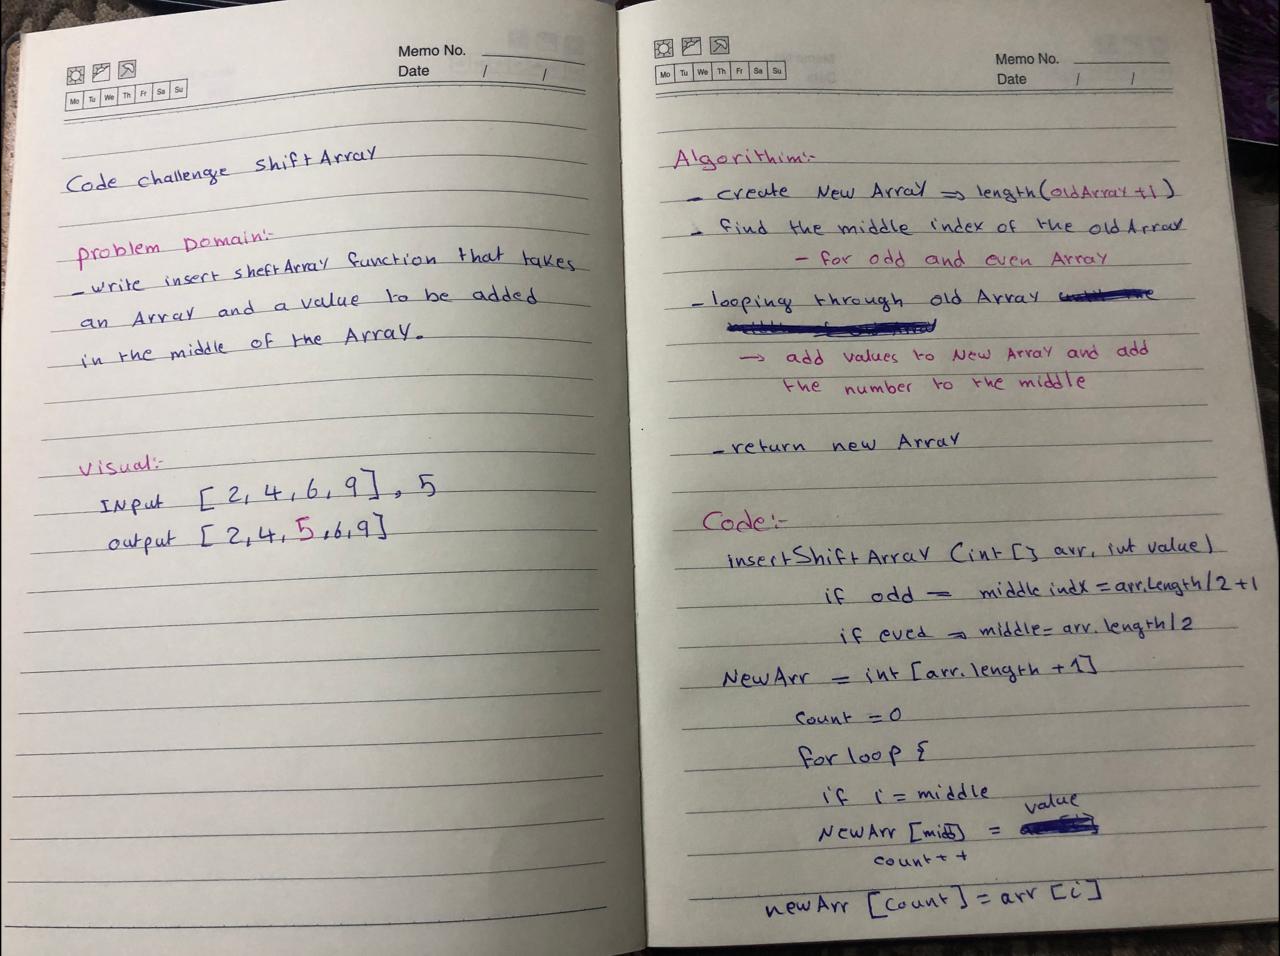 Memo No.
Date / /
Mo Tu We Th Fr Sa Su
Code challenge shiftArray
problem Domain:-
- write insert sheftArray function that takes
an Array and a value to be added
in the middle of the Array.
visual:-
INput [2, 4, 6, 9], 5
output [2, 4, 5, 6, 9]
Memo No.
Date / /
Mo Tu We Th Fr Sa Su
Algorithim:-
- create New Array ⇒ length(oldArray +1)
- find the middle index of the old Array
- for odd and even Array
- looping through old Array
→ add values to New Array and add
the number to the middle
- return new Array
Code:-
insertShiftArray (int [] arr, int value)
if odd = middle indx = arr.length/2 +1
if eved ⇒ middle = arr.length/2
NewArr = int [arr.length +1]
count = 0
for loop {
if i = middle
value
NewArr [midd] =
count++
newArr [count] = arr [i]